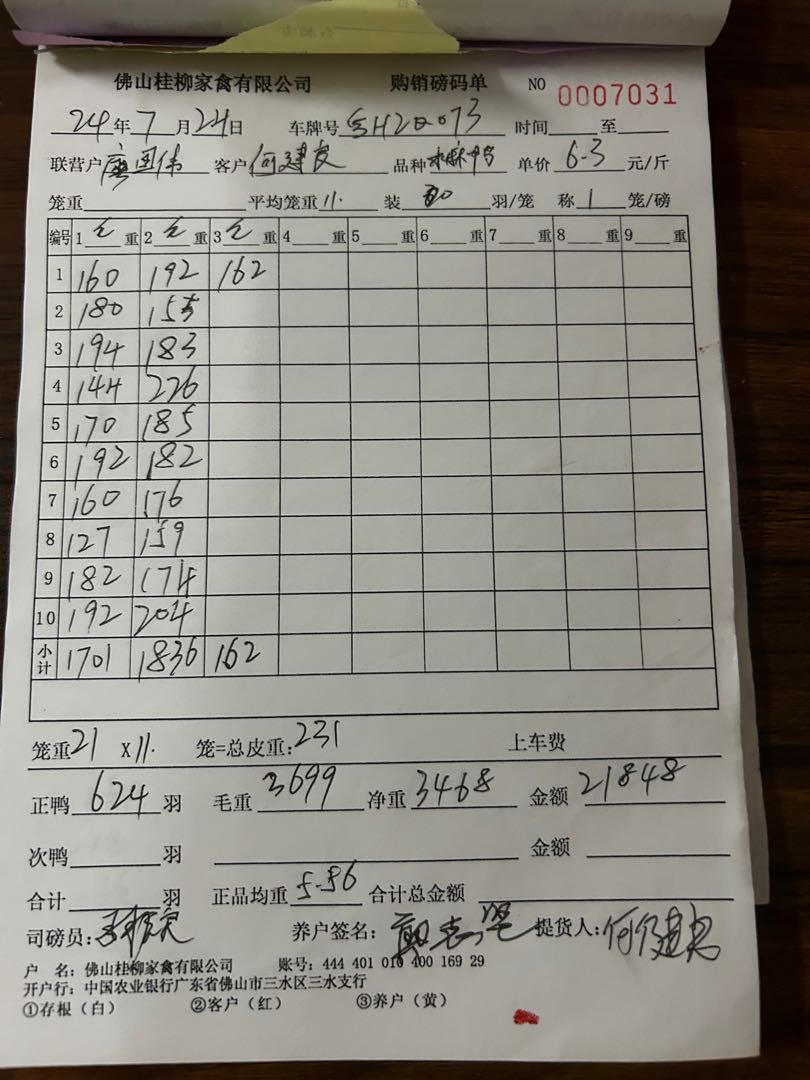 佛山桂柳家禽有限公司 购销磅码单 NO 0007031
24年7月24日 车牌号 时间 至
联营户 廖国伟 客户 何建良 品种 单价 6-3 元/斤
笼重 平均笼重 11. 装 30 羽/笼 称 1 笼/磅
编号 1 重 2 重 3 重 4 重 5 重 6 重 7 重 8 重 9 重
1 160 192 162
2 180 155
3 194 183
4 144 226
5 170 185
6 192 182
7 160 176
8 127 159
9 182 174
10 192 204
小计 1701 1836 162
笼重 21 X 11. 笼=总皮重: 231 上车费
正鸭 624 羽 毛重 3699 净重 3468 金额 21848
次鸭 羽 金额
合计 羽 正品均重 5-56 合计总金额
司磅员: 养户签名: 提货人:
户 名: 佛山桂柳家禽有限公司 账号: 444 401 010 400 169 29
开户行: 中国农业银行广东省佛山市三水区三水支行
①存根（白） ②客户（红） ③养户（黄）